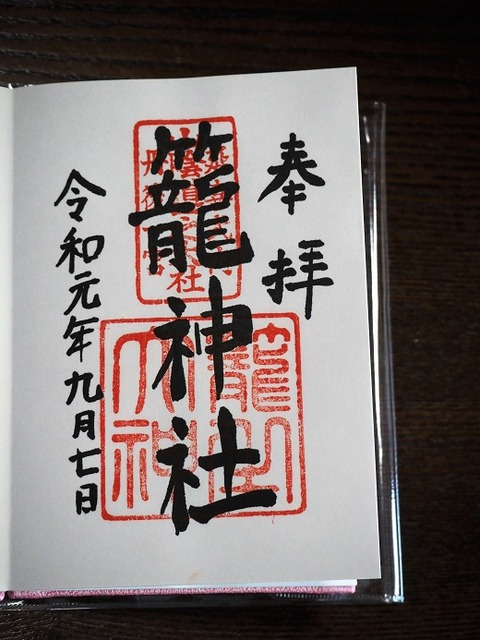 奉拝
籠神社
令和元年九月七日
大神